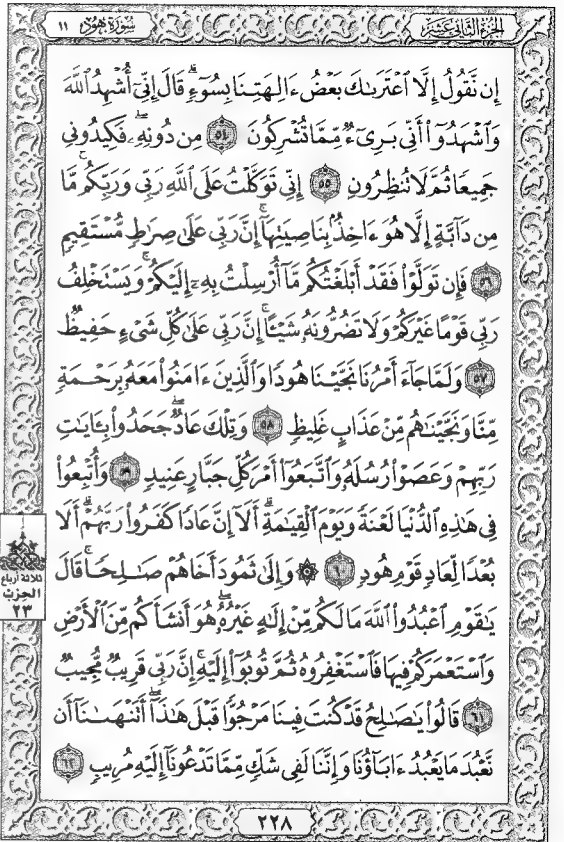 الجزء الثاني عشر
سورة هود ١١
إِن نَّقُولُ إِلَّا ٱعْتَرَىٰكَ بَعْضُ ءَالِهَتِنَا بِسُوٓءٍۗ قَالَ إِنِّىٓ أُشْهِدُ ٱللَّهَ
وَٱشْهَدُوٓا۟ أَنِّى بَرِىٓءٌ مِّمَّا تُشْرِكُونَ ٥٤ مِن دُونِهِۦۖ فَكِيدُونِى
جَمِيعًا ثُمَّ لَا تُنظِرُونِ ٥٥ إِنِّى تَوَكَّلْتُ عَلَى ٱللَّهِ رَبِّى وَرَبِّكُمۚ مَّا
مِن دَآبَّةٍ إِلَّا هُوَ ءَاخِذٌۢ بِنَاصِيَتِهَآۚ إِنَّ رَبِّى عَلَىٰ صِرَٰطٍ مُّسْتَقِيمٍ
٥٦ فَإِن تَوَلَّوْا۟ فَقَدْ أَبْلَغْتُكُم مَّآ أُرْسِلْتُ بِهِۦٓ إِلَيْكُمْۚ وَيَسْتَخْلِفُ
رَبِّى قَوْمًا غَيْرَكُمْ وَلَا تَضُرُّونَهُۥ شَيْـًٔاۚ إِنَّ رَبِّى عَلَىٰ كُلِّ شَىْءٍ حَفِيظٌ
٥٧ وَلَمَّا جَآءَ أَمْرُنَا نَجَّيْنَا هُودًا وَٱلَّذِينَ ءَامَنُوا۟ مَعَهُۥ بِرَحْمَةٍ
مِّنَّا وَنَجَّيْنَٰهُم مِّنْ عَذَابٍ غَلِيظٍ ٥٨ وَتِلْكَ عَادٌۖ جَحَدُوا۟ بِـَٔايَٰتِ
رَبِّهِمْ وَعَصَوْا۟ رُسُلَهُۥ وَٱتَّبَعُوٓا۟ أَمْرَ كُلِّ جَبَّارٍ عَنِيدٍ ٥٩ وَأُتْبِعُوا۟
فِى هَٰذِهِ ٱلدُّنْيَا لَعْنَةً وَيَوْمَ ٱلْقِيَٰمَةِۗ أَلَآ إِنَّ عَادًا كَفَرُوا۟ رَبَّهُمْۗ أَلَا
بُعْدًا لِّعَادٍ قَوْمِ هُودٍ ٦٠ ۞ وَإِلَىٰ ثَمُودَ أَخَاهُمْ صَٰلِحًاۚ قَالَ
يَٰقَوْمِ ٱعْبُدُوا۟ ٱللَّهَ مَا لَكُم مِّنْ إِلَٰهٍ غَيْرُهُۥۖ هُوَ أَنشَأَكُم مِّنَ ٱلْأَرْضِ
وَٱسْتَعْمَرَكُمْ فِيهَا فَٱسْتَغْفِرُوهُ ثُمَّ تُوبُوٓا۟ إِلَيْهِۚ إِنَّ رَبِّى قَرِيبٌ مُّجِيبٌ
٦١ قَالُوا۟ يَٰصَٰلِحُ قَدْ كُنتَ فِينَا مَرْجُوًّا قَبْلَ هَٰذَآۖ أَتَنْهَىٰنَآ أَن
نَّعْبُدَ مَا يَعْبُدُ ءَابَآؤُنَا وَإِنَّنَا لَفِى شَكٍّ مِّمَّا تَدْعُونَآ إِلَيْهِ مُرِيبٍ ٦٢
ثلاثة أرباع
الحزب
٢٣
٢٢٨